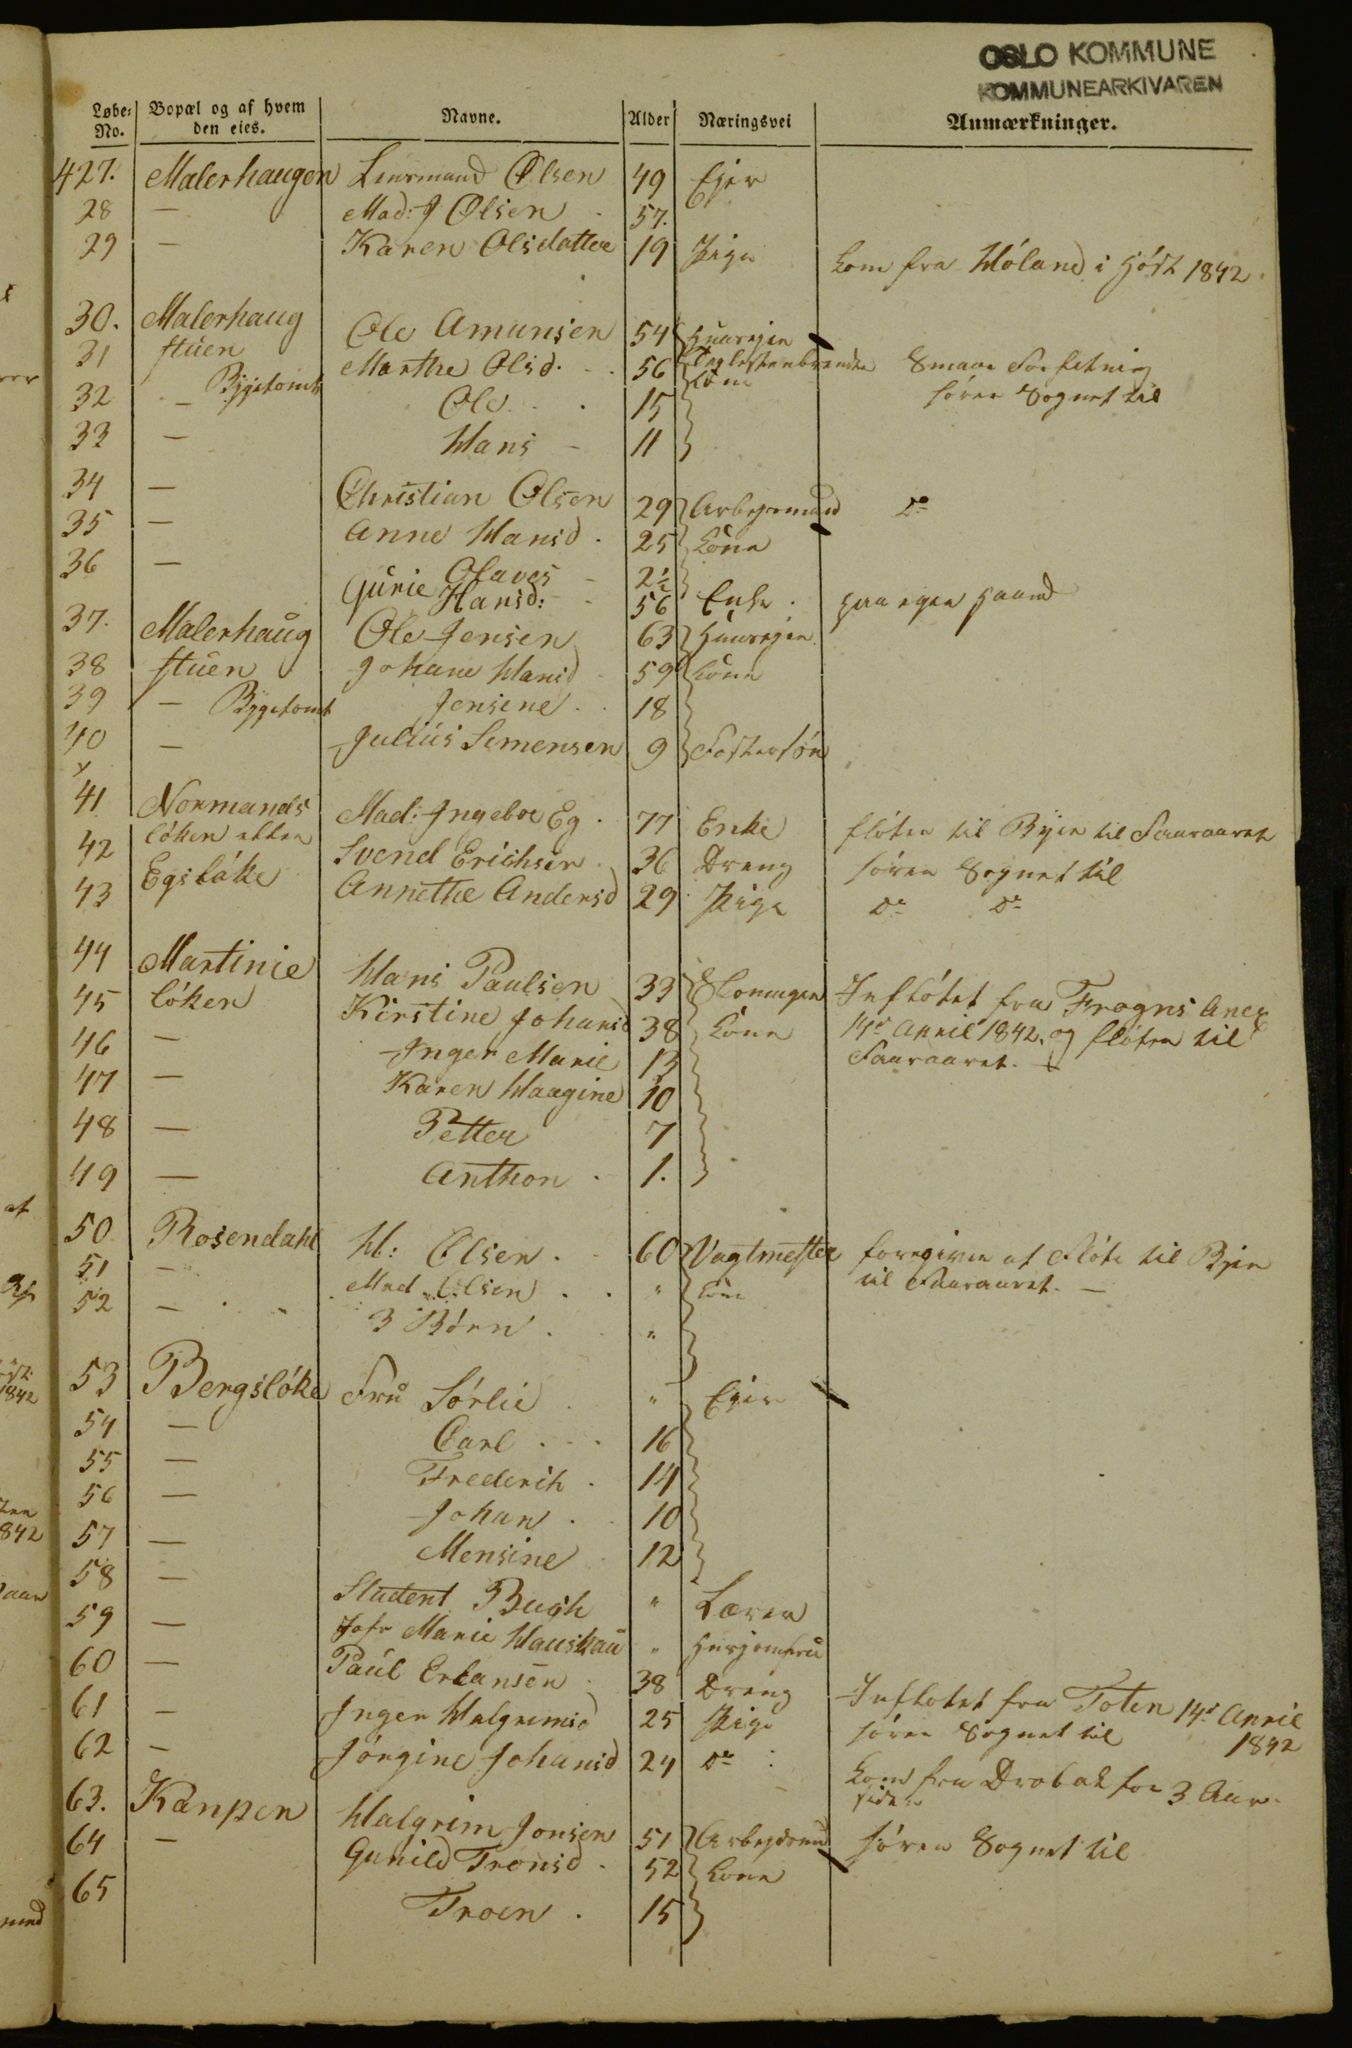 OSLO KOMMUNE
KOMMUNEARKIVAREN
Løbe- No. Bopæl og af hvem den eies. Navne. Alder Næringsvei Anmærkninger.
427. Malerhaugen Olsen 49 Ejer
28 — Mad: J Olsen 57.
29 — Karen Olsdatter 19 Pige kom fra Höland i Höst 1842
30. Malerhaug Ole Amunsen 54 Huusejer
31 stuen Marthe Olsd. 56 Kone Smaae Forfatning
32 — Bygetomt Ole 15 hörer Sognet til
33 — Hans 11
34 — Christian Olsen 29 Arbejdsmand Do
35 — Anne Hansd. 25 Kone
36 — Olaves 2½
Gurie Hansd: 56 Enke paa egen Haand
37. Malerhaug Ole Jensen 63 Huusejer
38 stuen Johane Hansd 59 Kone
39 — Bygetomt Jensine 18
40 — Julius Simensen 9 Fostersön
41 Normands Mad: Ingebor Eg 77 Enke flötter til Byen til Faaraaret
42 löken eller Svend Erichsen 36 Dreng hörer Sognet til
43 Egslöke Annethe Andersd 29 Pige Do Do
44 Martinie Hans Paulsen 33 Indflötet fra Frogns Anex
45 löken Kirstine Johansd 38 Kone 14d April 1842. og flötter til
46 — Inger Marie 13 Faaraaret. —
47 — Karen Haagine 10
48 — Petter 7
49 — Anthon 1.
50 Rosendahl H: Olsen 60 Vagtmester foregiver at flöte til Byen
51 — Mad Olsen " Kone til Faaraaret. —
52 — 3 Börn "
53 Bergslöke Fru Sörlie " Ejer
54 — Carl 16
55 — Frederik 14
56 — Johan 10
57 — Mensine 12
58 — Student Bugh " Lærer
59 — Jofr Marie Hauskau " Husjomfru
60 — Paul Erlansen 38 Dreng Indflötet fra Toten 14d April 1842
61 — Inger Halgrimsd 25 Pige hörer Sognet til
62 — Jörgine Johansd 24 Do kom fra Drobak for 3 Aar siden
63. Kampen Halgrim Jonsen 51 Arbejdsmd hörer Sognet til
64 — Gunild Tronsd 52 Kone
65 Troen 15